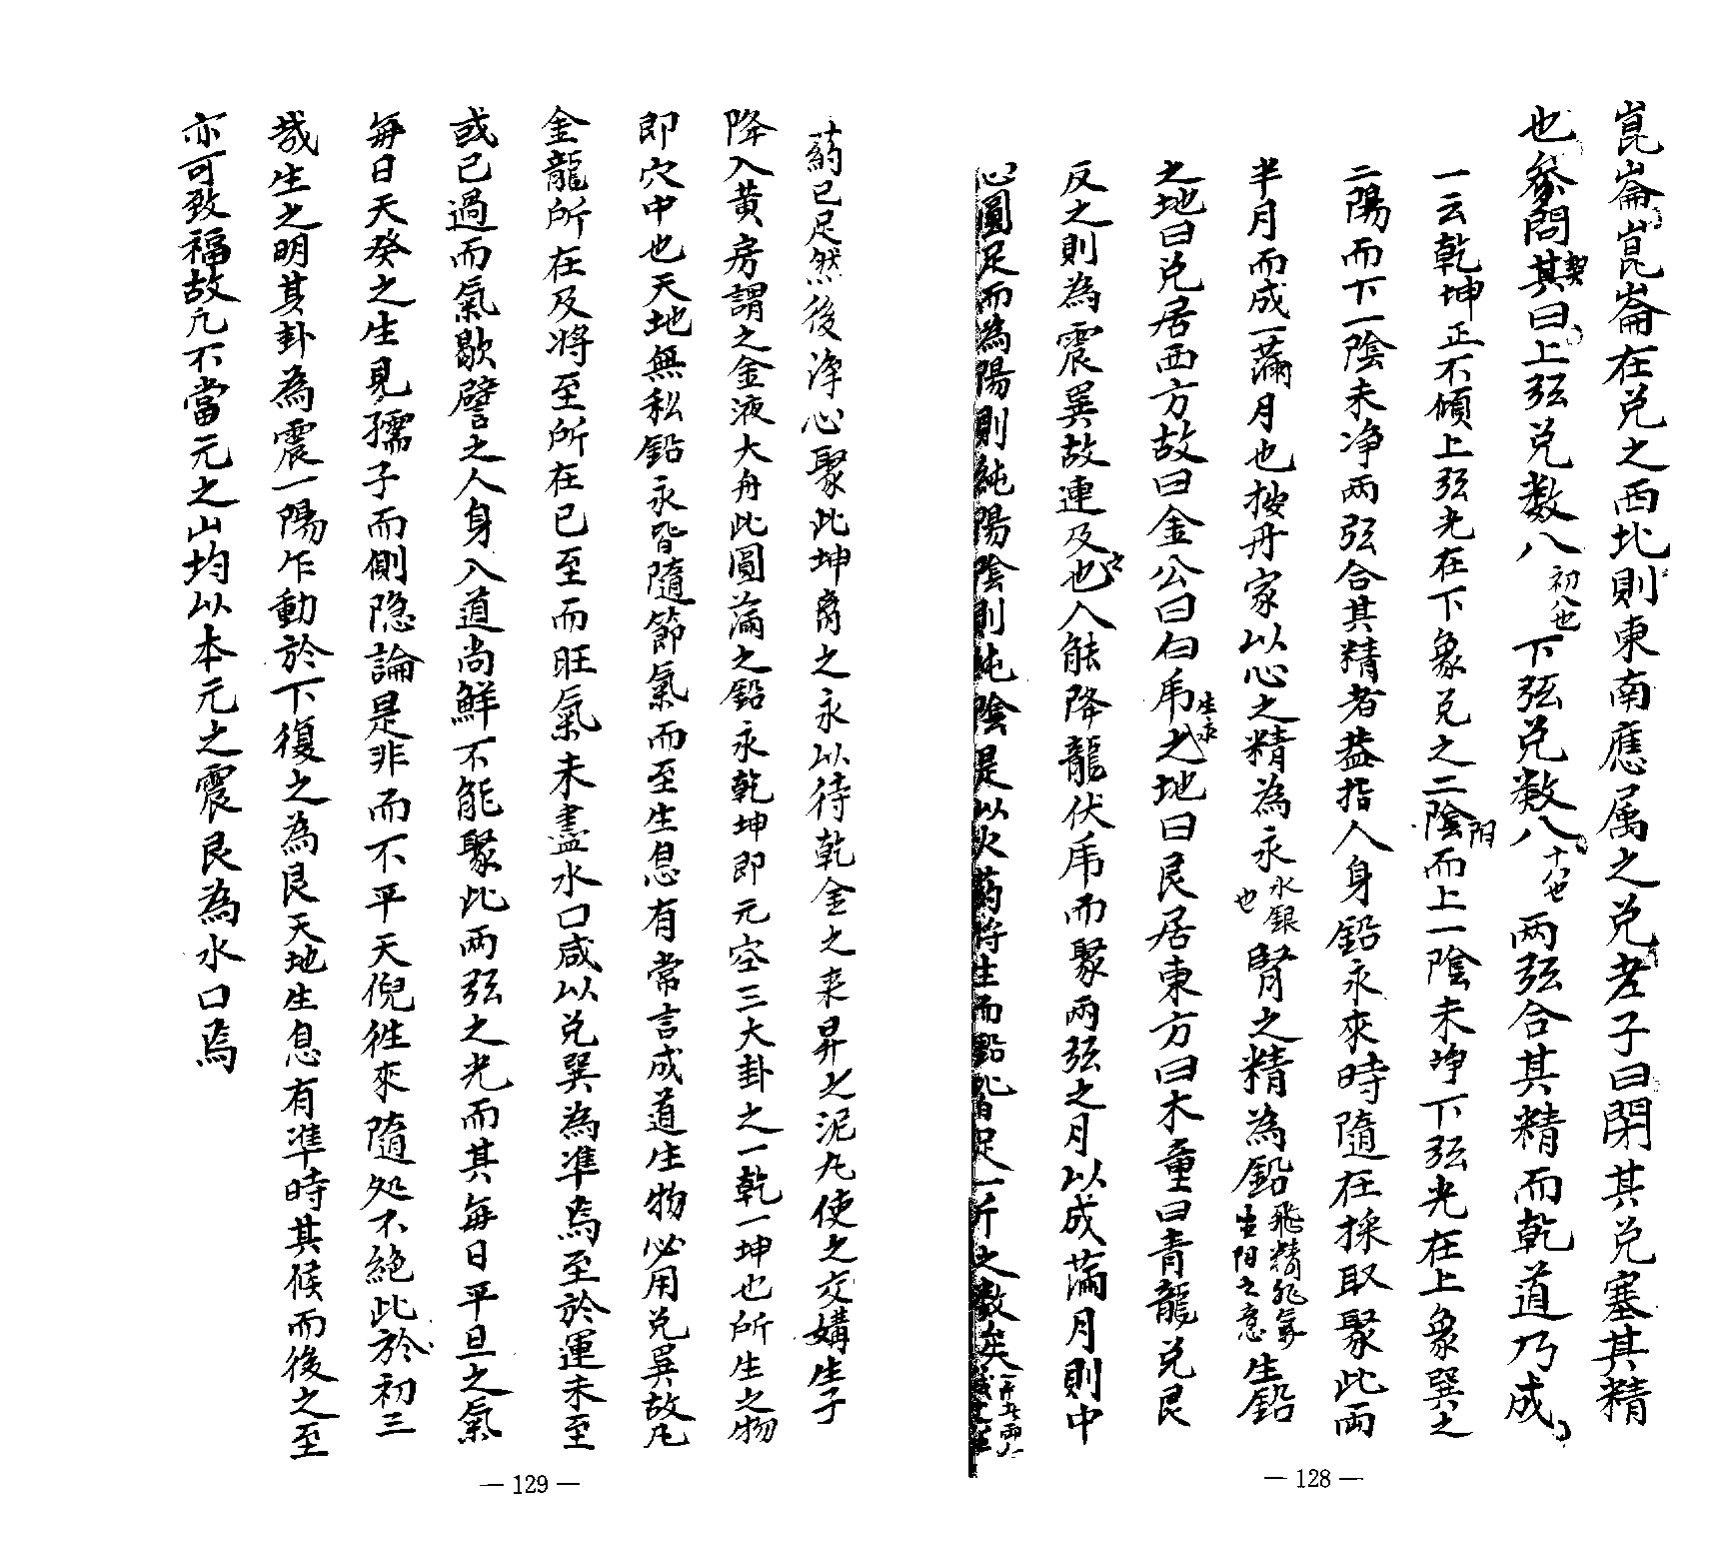 崑崙崑崙在兌之西北則東南應属之兌老子曰閉其兌塞其精
也參問其曰上弦兌数八初八也下弦兌数八十八也两弦合其精而乾道乃成
契
一云乾坤正不傾上弦光在下象兌之二陰而上一陰未净下弦光在上象巽之
阳
二陽而下一陰未净两弦合其精者葢指人身鉛永來時隨在採取聚此両
半月而成一滿月也按丹家以心之精為永水銀也腎之精為鉛飛精化氣生阳之意生鉛
之地曰兌居西方故曰金公曰白乕之地曰艮居東方曰木童曰青龍兌艮
生永
反之則為震巽故連及也入能降龍伏乕而聚两弦之月以成滿月則中
心圓足而為陽則純陽陰則純陰是以火药将生而點化百足一斤之数矣
葯已足然後净心聚此坤离之永以待乾金之来昇之泥丸使之交媾生子
降入黄房謂之金液大丹此圓滿之鉛永乾坤即元空三大卦之一乾一坤也所生之物
即穴中也天地無私鉛永皆隨節氣而至生息有常言成道生物必用兌巽故凡
金龍所在及将至所在已至而旺氣未盡水口咸以兌巽為準焉至於運未至
或已過而氣歇譬之人身入道尚鮮不能聚此两弦之光而其每日平旦之氣
每日天癸之生見孺子而側隐論是非而不平天倪徃來隨处不絶此於初三
哉生之明其卦為震一陽乍動於下復之為艮天地生息有準時其候而後之至
亦可致福故凡不當元之山均以本元之震艮為水口焉
— 129 —
— 128 —